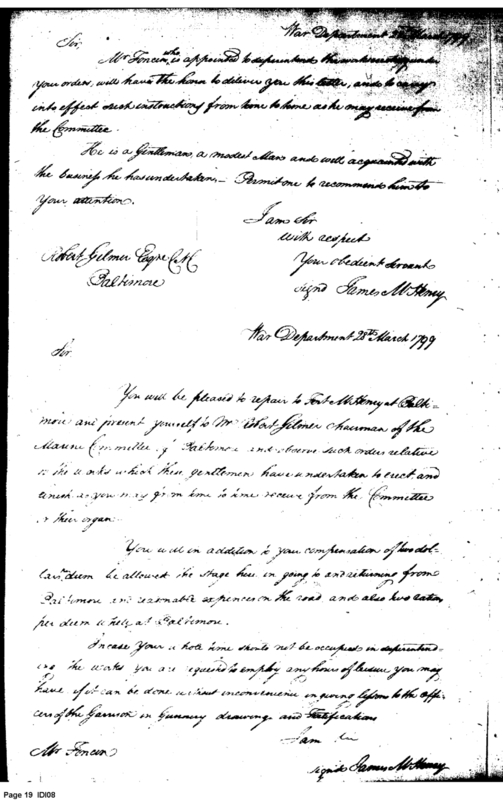 War Department 28th March 1799
Sir,
Mr Foncin, who is appointed to superintend the works under
your orders, will have the honor to deliver you this letter, and to carry
into effect such instructions from time to time as he may receive from
the Committee
He is a Gentleman, a modest Man and well acquainted with
the business he has undertaken,— Permit me to recommend him to
your attention.
I am Sir
with respect
Robert Gilmor Esqre
Your obedient Servant
Baltimore
signd James McHenry
War Department 28th March 1799
Sir
You will be pleased to repair to Fort McHenry at Balti-
more and present yourself to Mr Robert Gilmor Chairman of the
Marine Committee of Baltimore and observe such orders relative
to the works which these gentlemen have undertaken to erect and
finish as you may from time to time receive from the Committee
or their organ.
You will in addition to your compensation of two dol-
lars diem be allowed the stage hire in going to and returning from
Baltimore and reasonable expences on the road and also two rations
per diem while at Baltimore.
Incase your whole time should not be occupied in superintend-
ing the works you are requested to employ any hours of leisure you may
have if it can be done without inconvenience in giving lessons to the offi-
cers of the Garrison in Gunnery drawing and Fortifications
I am
Mr Foncin
signd James McHenry
Page 19 IDI08